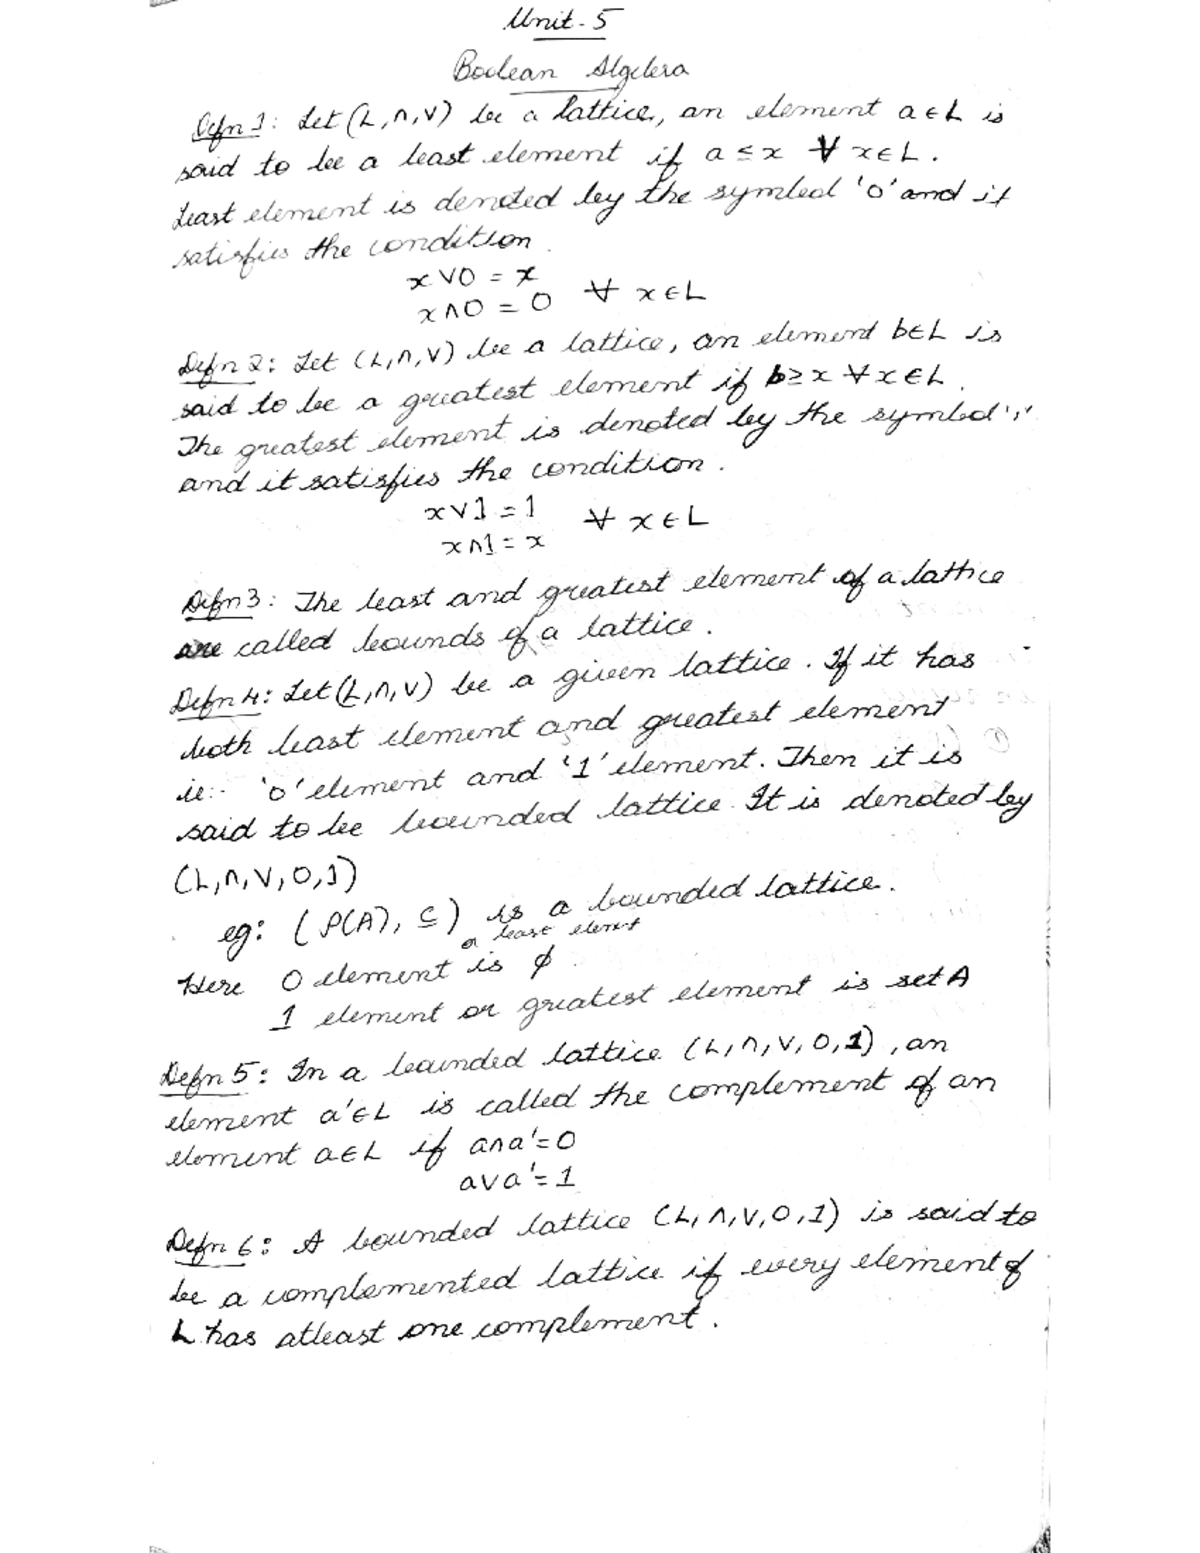 Unit - 5
Boolean Algebra
Defn 1: Let (L, ∧, ∨) be a lattice, an element a ∈ L is
said to be a least element if a ≤ x ∀ x ∈ L.
Least element is denoted by the symbol '0' and it
satisfies the condition.
x ∨ 0 = x
x ∧ 0 = 0 ∀ x ∈ L
Defn 2: Let (L, ∧, ∨) be a lattice, an element b ∈ L is
said to be a greatest element if b ≥ x ∀ x ∈ L.
The greatest element is denoted by the symbol '1'
and it satisfies the condition.
x ∨ 1 = 1 ∀ x ∈ L
x ∧ 1 = x
Defn 3: The least and greatest element of a lattice
are called bounds of a lattice.
Defn 4: Let (L, ∧, ∨) be a given lattice. If it has
both least element and greatest element
ie:- '0' element and '1' element. Then it is
said to be bounded lattice. It is denoted by
(L, ∧, ∨, 0, 1)
eg: (P(A), ⊆) is a bounded lattice.
or least element
Here 0 element is ϕ
1 element or greatest element is set A
Defn 5: In a bounded lattice (L, ∧, ∨, 0, 1), an
element a' ∈ L is called the complement of an
element a ∈ L if a ∧ a' = 0
a ∨ a' = 1
Defn 6: A bounded lattice (L, ∧, ∨, 0, 1) is said to
be a complemented lattice if every element of
L has atleast one complement.